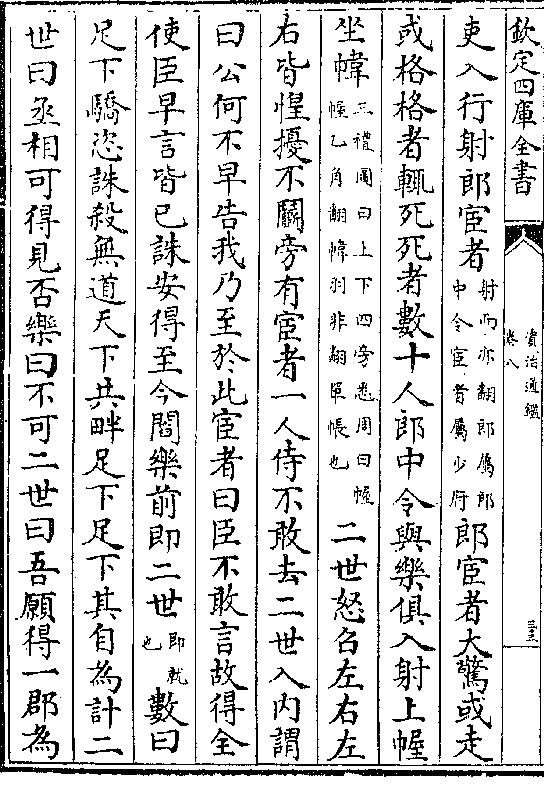 欽定四庫全書
資治通鑑
卷八
吏入行射郎宦者射而亦翻郎屬郎中令宦者屬少府郎宦者大驚或走
或格格者輒死死者數十人郎中令與樂俱入射上幄
坐幃三禮圖曰上下四旁悉周曰幄幄乙角翻幃羽非翻單帳也二世怒召左右左
右皆惶擾不鬭旁有宦者一人侍不敢去二世入内謂
曰公何不早告我乃至於此宦者曰臣不敢言故得全
使臣早言皆已誅安得至今閻樂前即二世即就也數曰
足下驕恣誅殺無道天下共畔足下足下其自為計二
世曰丞相可得見否樂曰不可二世曰吾願得一郡為